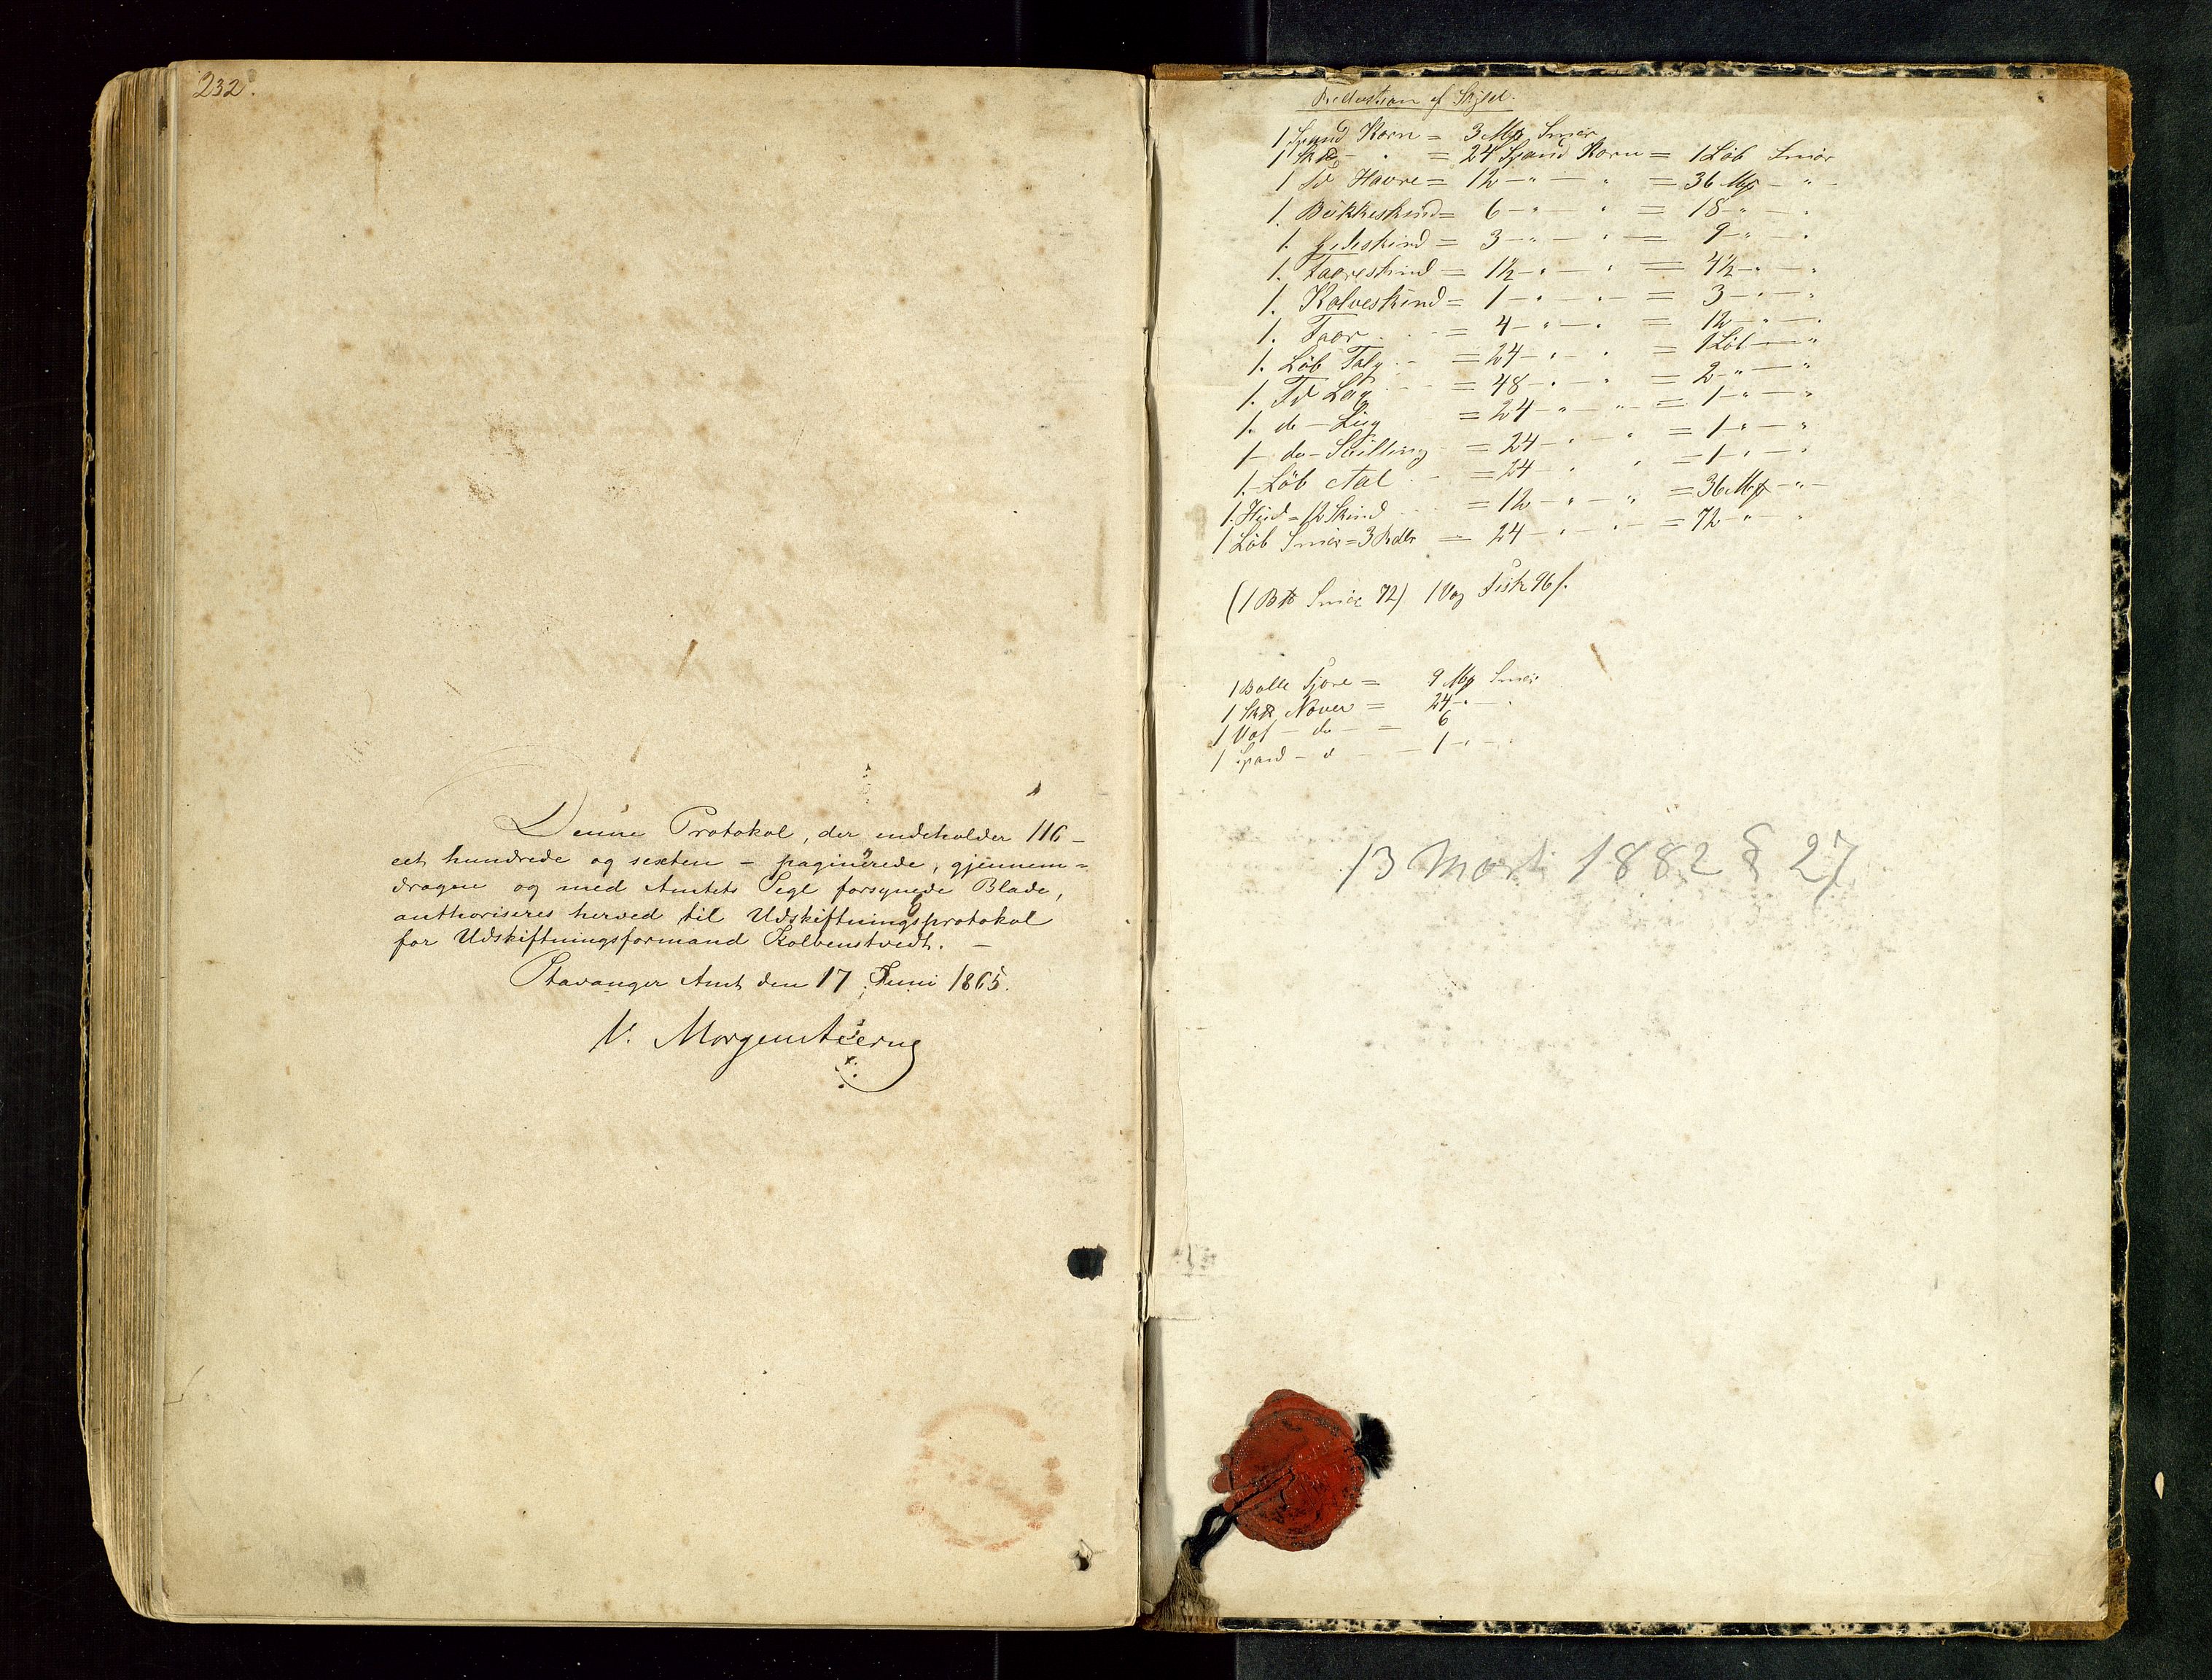 232.
Denne Protokol, der indeholder 116 –
eet hundrede og sexten – paginerede, gjennem=
dragne og med Amtets Segl forsynede Blade,
authoriseres herved til Udskiftningsprotokol
for Udskiftningsformand Kolbenstvedt. –
Stavanger Amt den 17 Juni 1865.
V. Morgenstierne
Reduction af Skyld.
1 Spand Korn = 3 Mß Smør
1 Sk℔ - " = 24 Spand Korn = 1 Löb Smör
1 Td Havre = 12 – " – " = 36 Mß – " –
1. Bukkeskind = 6 – " – " = 18 – " – "
1. Gedeskind = 3 – " – " = 9 – " – "
1. Faareskind = 1½ – " – " = 4½ – " – "
1. Kalveskind = 1 – " – " = 3 – " – "
1. Faar . . = 4 – " – " = 12 – " – "
1. Löb Talg . – = 24 – " – " = 1 Löb – "
1. Td Lax . – = 48 – " – " = 2 – " – "
1. do – = 24 – " – " = 1 – " – "
1 – do – = 24 – " – " = 1 – " – "
1. Löb = 24 " " = 1 – " – "
1. Hud = 12 Skind . . . = 12 – " – " = 36 Mß – " –
1 Löb Smör = 3 Rdlr = 24 – " – " = 72 – " "
(1 Smör 72) 1 Vog Fisk 96 ſ.
1 Bolle Tjære = 9 Mß Smör
1 Sk℔ Næver = 24 – " – "
1 Vog – do – = 6
1 Spand – d – – 1 – " – "
13 Mart 1882 § 27